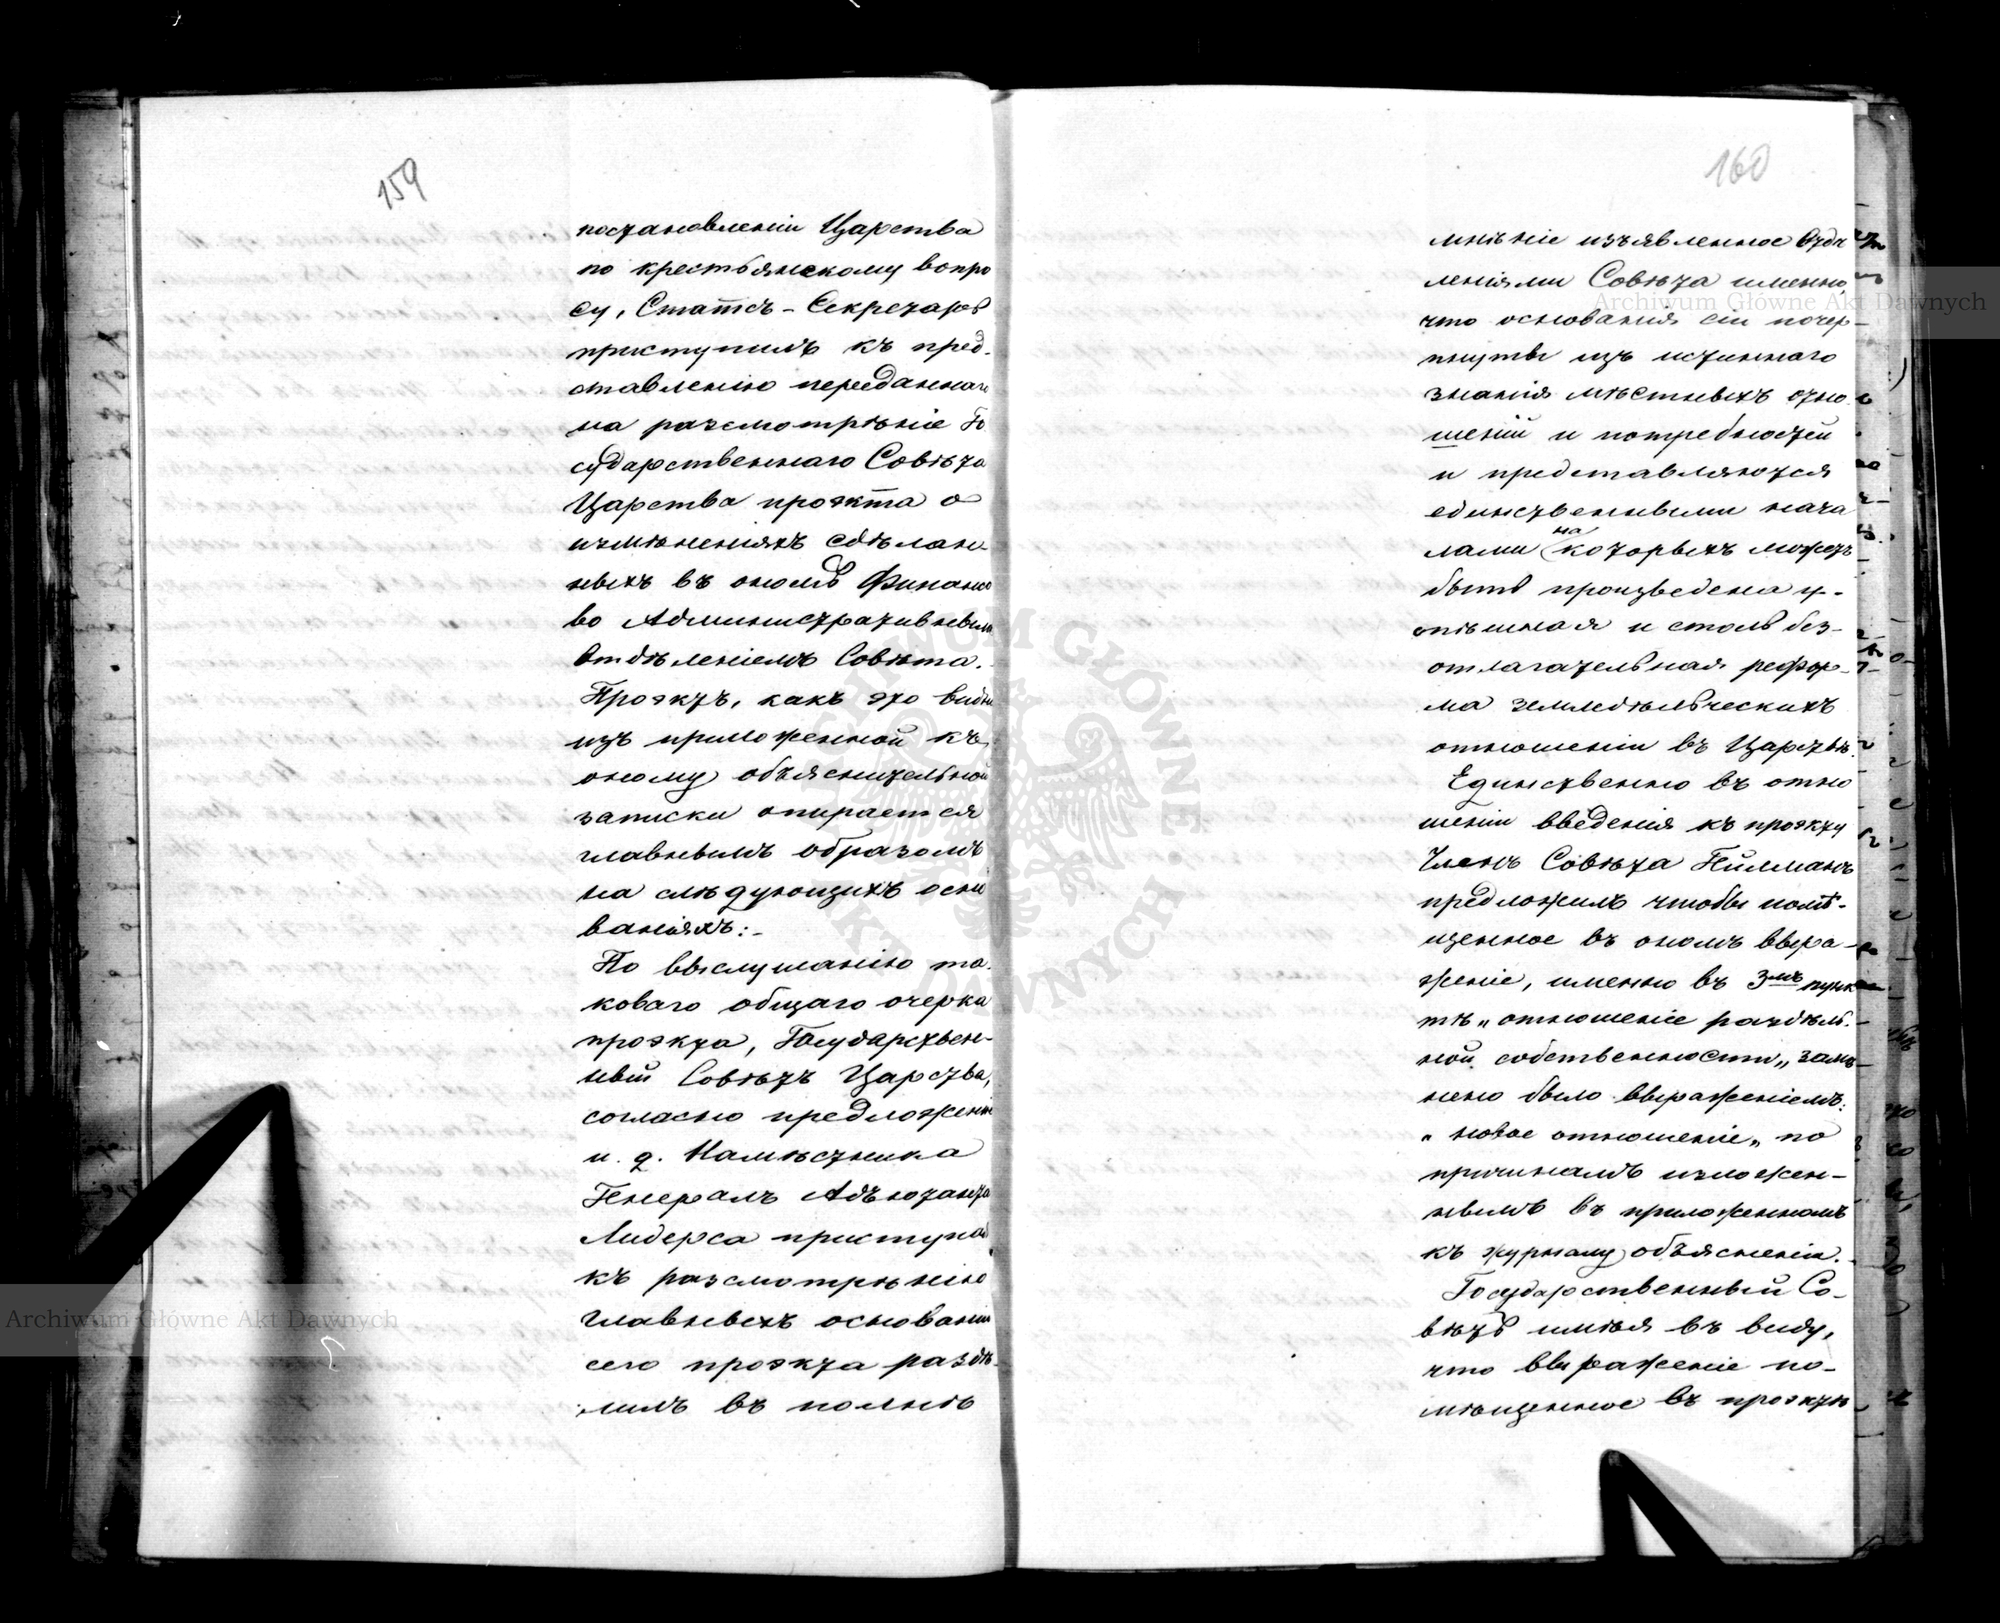 159
постановленіи Царства
по крестьянскому вопро
су, Статсъ-Секретарь
приступилъ къ пред-
ставленію переданнаго
на разсмотрѣніе Го
сударственнаго Совѣта
Царства проэкта о
измѣненіяхъ сдѣлан-
ныхъ въ ономъ Финансо
во Административнымъ
Отдѣленіемъ Совѣта.
Проэктъ, какъ это видно
изъ приложенной къ
оному объяснительной
записки опирается
главнымъ образомъ
на слѣдующихъ осно
ваніяхъ:-
По выслушанію та-
коваго общаго очерка
проэкта, Государствен-
ный Совѣтъ Царства,
согласно предложенію
и. д. Намѣстника
Генералъ Адъютанта
Лидерса приступая
къ разсмотрѣнію
главныхъ основаній
сего проэкта раздѣ-
лилъ въ полнѣ
160
мнѣніе изъявленное Отдѣ
леніями Совѣта именно,
что основанія сіи почер-
пнуты изъ истиннаго
знанія мѣстныхъ отно
шеній и потребностей
и представляются
единственными нача
лами на которыхъ можетъ
быть произведена у-
спѣшная и столь без-
отлагательная рефор-
ма земледѣльческихъ
отношеній въ Царствѣ.
Единственно въ отно
шеніи введенія къ проэкту
Членъ Совѣта Гилманъ
предложилъ чтобы помѣ-
щенное въ ономъ выра-
женіе, именно въ 3мъ пунк
тѣ „отношеніе раздѣль-
ной собственности„ замѣ-
нено было выраженіемъ:
„новое отношеніе„ по
причинамъ изложен-
нымъ въ приложенномъ
къ журналу объясненіи.
Государственный Со-
вѣтъ имѣя въ виду,
что выраженіе по-
мѣщенное въ проэктѣ
Archiwum Główne Akt Dawnych
Archiwum Główne Akt Dawnych
ARCHIWUM GŁÓWNE AKT DAWNYCH